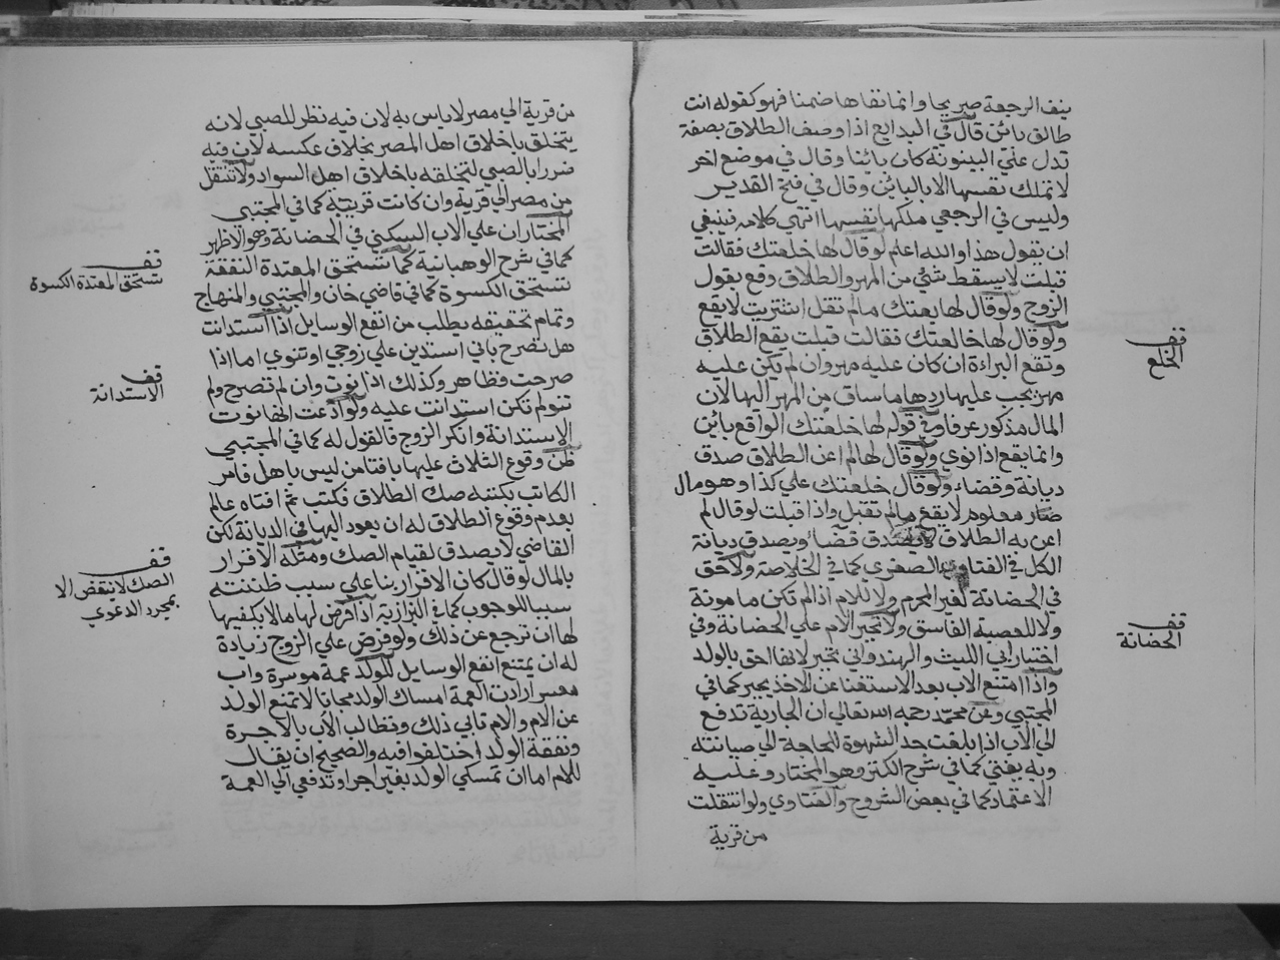 ينف الرجعة صريحا وانما نفاها ضمنا فهو كقوله انت
طالق بائن قال في البدايع اذا وصف الطلاق بصفة
تدل علي البينونة كان بائنا وقال في موضع اخر
لا تملك نفسها الا بالبائن وقال في فتح القدير
وليس في الرجعي ملكها نفسها انتهي كلامه فينبغي
ان يقول هذا والله اعلم لو قال لها خلعتك فقالت
قبلت لا يسقط شئ من المهر والطلاق وقع بقول
الزوج ولو قال لها بعتك مالم تقل اشتريت لا يقع
ولو قال لها خالعتك فقالت قبلت يقع الطلاق
وتقع البراءة ان كان عليه مهر وان لم يكن عليه
مهر يجب عليها رد ما ساق من المهر اليها لان
المال مذكور عرفا وفي قوله لها خلعتك الواقع بائن
وانما يقع اذا نوي ولو قال لها لم اعن الطلاق صدق
ديانة وقضاء ولو قال خلعتك علي كذا وهو مال
معلوم لا يقع مالم تقبل واذا قبلت لو قال لم
اعن به الطلاق لا يصدق قضا ويصدق ديانة
الكل في الفتاوي الصغري كما في الخلاصة ولا حق
في الحضانة لغير المحرم ولا للام اذا لم تكن مامونة
ولا للعصبة الفاسق ولا تجبر الام علي الحضانة وفي
اختيار ابي الليث والهندواني تجبر لانها احق بالولد
واذا امتنع الاب بعد الاستغنا عن الاخذ يجبر كما في
المجتبي وعن محمد رحمه الله تعالي ان الجارية تدفع
الي الاب اذا بلغت حد الشهوة للحاجة الي صيانته
وبه يفتي كما في شرح الكنز وهو المختار وعليه
الاعتماد كما في بعض الشروح والفتاوي ولو انتقلت
من قرية
قف
الخلع
قف
الحضانة
من قرية الي مصر لا باس به لان فيه نظر للصبي لانه
يتخلق باخلاق اهل المصر بخلاف عكسه لان فيه
ضررا بالصبي لتخلقه باخلاق اهل السواد ولا تنتقل
من مصر الي قرية وان كانت قريبة كما في المجتبي
المختار ان علي الاب السكني في الحضانة وهو الاظهر
كما في شرح الوهبانية كما تستحق المعتدة النفقة
تستحق الكسوة كما في قاضي خان والمجتبي والمنهاج
وتمام تحقيقه يطلب من انفع الوسايل اذا استدانت
هل تصرح باني استدين علي زوجي او تنوي اما اذا
صرحت فظاهر وكذلك اذا نوت وان لم تصرح ولم
تنو لم تكن استدانت عليه ولو ادعت انها نوت
الاستدانة وانكر الزوج فالقول له كما في المجتبي
ظن وقوع الثلاث عليها بافتا من ليس باهل فامر
الكاتب بكتبه صك الطلاق فكتب ثم افتاه عالم
بعدم وقوع الطلاق له ان يعود اليها في الديانة لكن
القاضي لا يصدق لقيام الصك ومثله الاقرار
بالمال لو قال كان الاقرار بنا علي سبب ظننته
سببا للوجوب كما في البزازية اذا فرض لها ما لا يكفيها
لها ان ترجع عن ذلك ولو فرض علي الزوج زيادة
له ان يمتنع انفع الوسايل للولد عمة موسرة واب
معسر ارادت العمة امساك الولد مجانا لا تمنع الولد
عن الام والام تابي ذلك وتطالب الاب بالاجرة
ونفقة الولد اختلفوا فيه والصحيح ان يقال
للام اما ان تمسكي الولد بغير اجر او تدفعي الي العمة
قف
تستحق المعتدة الكسوة
قف
الاستدانة
قف
الصك لا ينتقض الا
بمجرد الدعوي